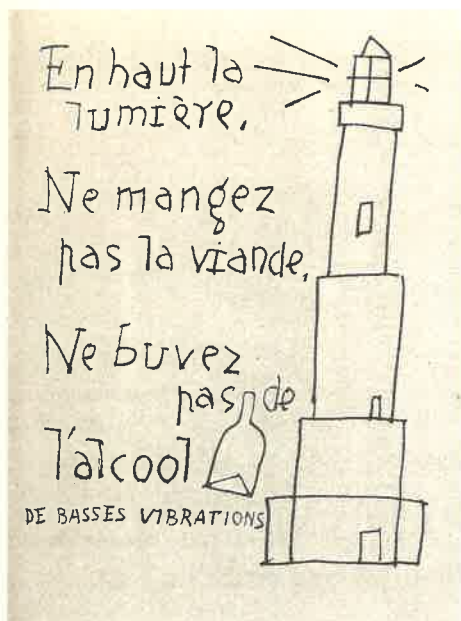 En haut la
lumière.
Ne mangez
pas la viande.
Ne buvez
pas de
l'alcool
DE BASSES VIBRATIONS